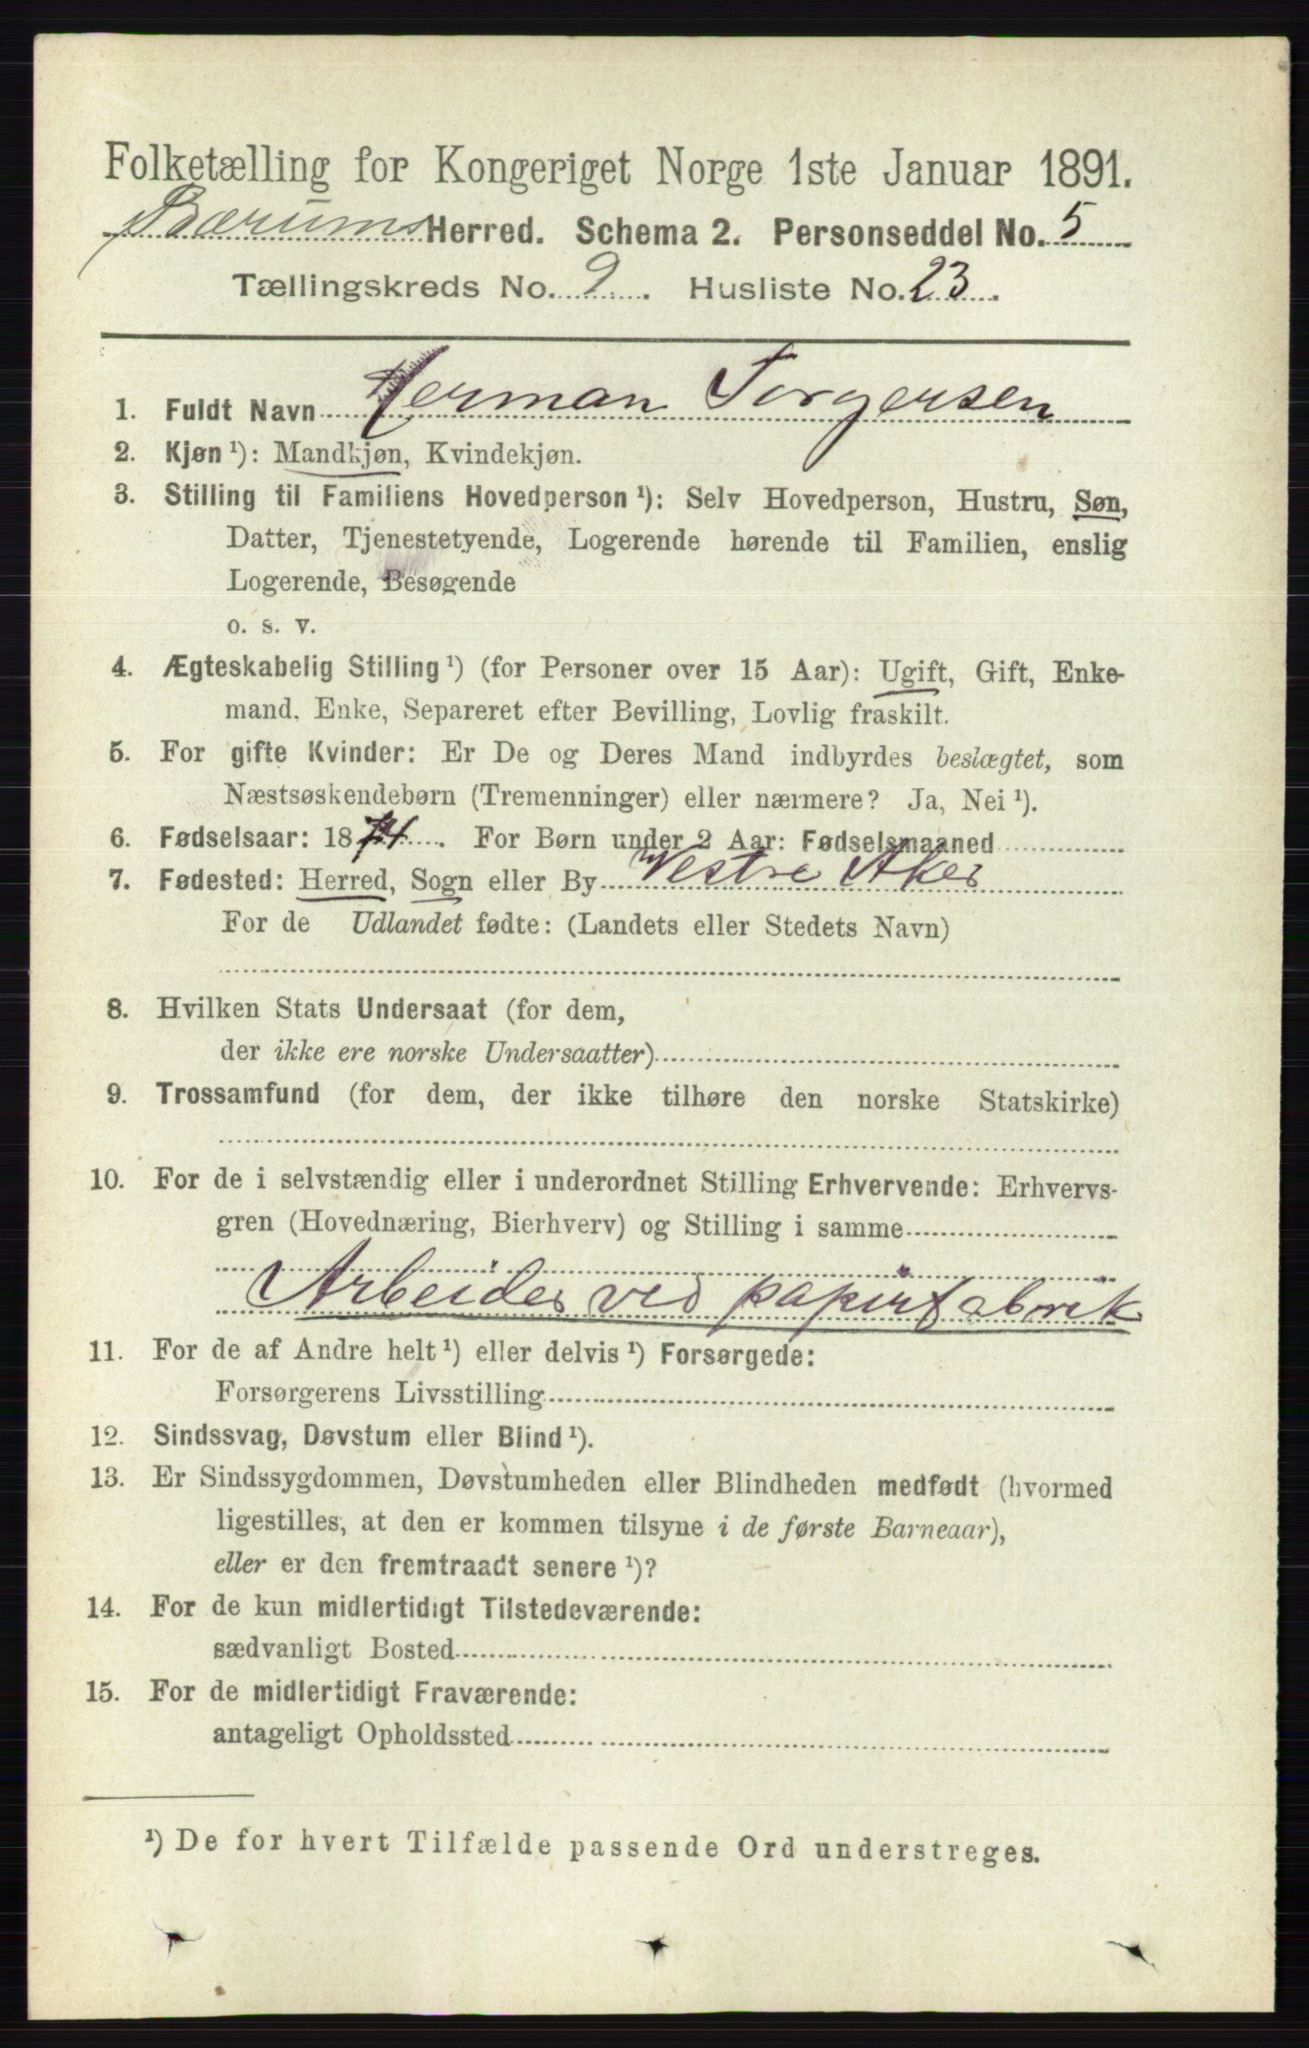 Folketælling for Kongeriget Norge 1ste Januar 1891.
Bærums Herred. Schema 2. Personseddel No. 5
Tællingskreds No. 9. Husliste No. 23.
1. Fuldt Navn Herman Torgersen
2. Kjøn ¹): Mandkjøn, Kvindekjøn.
3. Stilling til Familiens Hovedperson ¹): Selv Hovedperson, Hustru, Søn,
Datter, Tjenestetyende, Logerende hørende til Familien, enslig
Logerende, Besøgende
o. s. v.
4. Ægteskabelig Stilling ¹) (for Personer over 15 Aar): Ugift, Gift, Enke-
mand, Enke, Separeret efter Bevilling, Lovlig fraskilt.
5. For gifte Kvinder: Er De og Deres Mand indbyrdes beslægtet, som
Næstsøskendebørn (Tremenninger) eller nærmere? Ja, Nei ¹).
6. Fødselsaar: 1874. For Børn under 2 Aar: Fødselsmaaned
7. Fødested: Herred, Sogn eller By Vestre Aker
For de Udlandet fødte: (Landets eller Stedets Navn)
8. Hvilken Stats Undersaat (for dem,
der ikke ere norske Undersaatter)
9. Trossamfund (for dem, der ikke tilhøre den norske Statskirke)
10. For de i selvstændig eller i underordnet Stilling Erhvervende: Erhvervs-
gren (Hovednæring, Bierhverv) og Stilling i samme
Arbeider ved papirfabrik
11. For de af Andre helt ¹) eller delvis ¹) Forsørgede:
Forsørgerens Livsstilling
12. Sindssvag, Døvstum eller Blind ¹).
13. Er Sindssygdommen, Døvstumheden eller Blindheden medfødt (hvormed
ligestilles, at den er kommen tilsyne i de første Barneaar),
eller er den fremtraadt senere ¹)?
14. For de kun midlertidigt Tilstedeværende:
sædvanligt Bosted
15. For de midlertidigt Fraværende:
antageligt Opholdssted
¹) De for hvert Tilfælde passende Ord understreges.